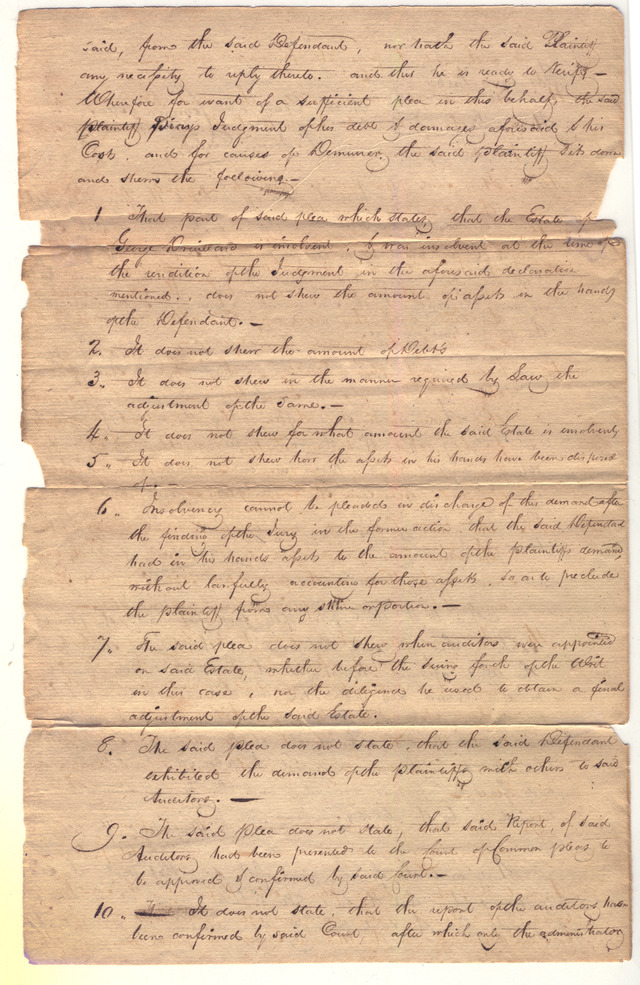 said, from the said Defendant, nor hath the said Plaintiff
any necessity to reply thereto. and this he is ready to Verify—
Wherefore for want of a sufficient plea in this behalf, the said
plaintiff prays Judgment of his debt & damages aforesaid & his
Costs, and for causes of Demurrer, the said plaintiff sets down
and shews the following.—
1 That part of said plea which states, that the Estate of
George is insolvent, & was insolvent at the time of
the rendition of the Judgment in the aforesaid declaration
mentioned., does not shew the amount of assets in the hands
of the Defendant.—
2. It does not shew the amount of Debts
3. It does not shew in the manner required by Law, the
adjustment of the same.—
4. It does not shew for what amount the said Estate is insolvent
5. It does not shew how the assets in his hands have been disposed
of.—
6. Insolvency cannot be pleaded in discharge of this demand after
the finding of the Jury in the former action that the said Defendant
had in his hands assets to the amount of the plaintiffs demand,
without lawfully accounting for those assets, so as to preclude
the plaintiff from any portion.—
7. The said plea does not shew when auditors were appointed
on said Estate, whether before the suing forth of the Writ
in this case, nor the diligence he used to obtain a final
adjustment of the said Estate.
8. The said plea does not state, that the said Defendant
exhibited the demand of the plaintiffs with others to said
Auditors.—
9. The said plea does not state, that said Report, of said
Auditors had been presented to the Court of Common pleas to
be approved & confirmed by said Court.—
10. It does not state, that the report of the auditors have
been confirmed by said Court after which only the administrator